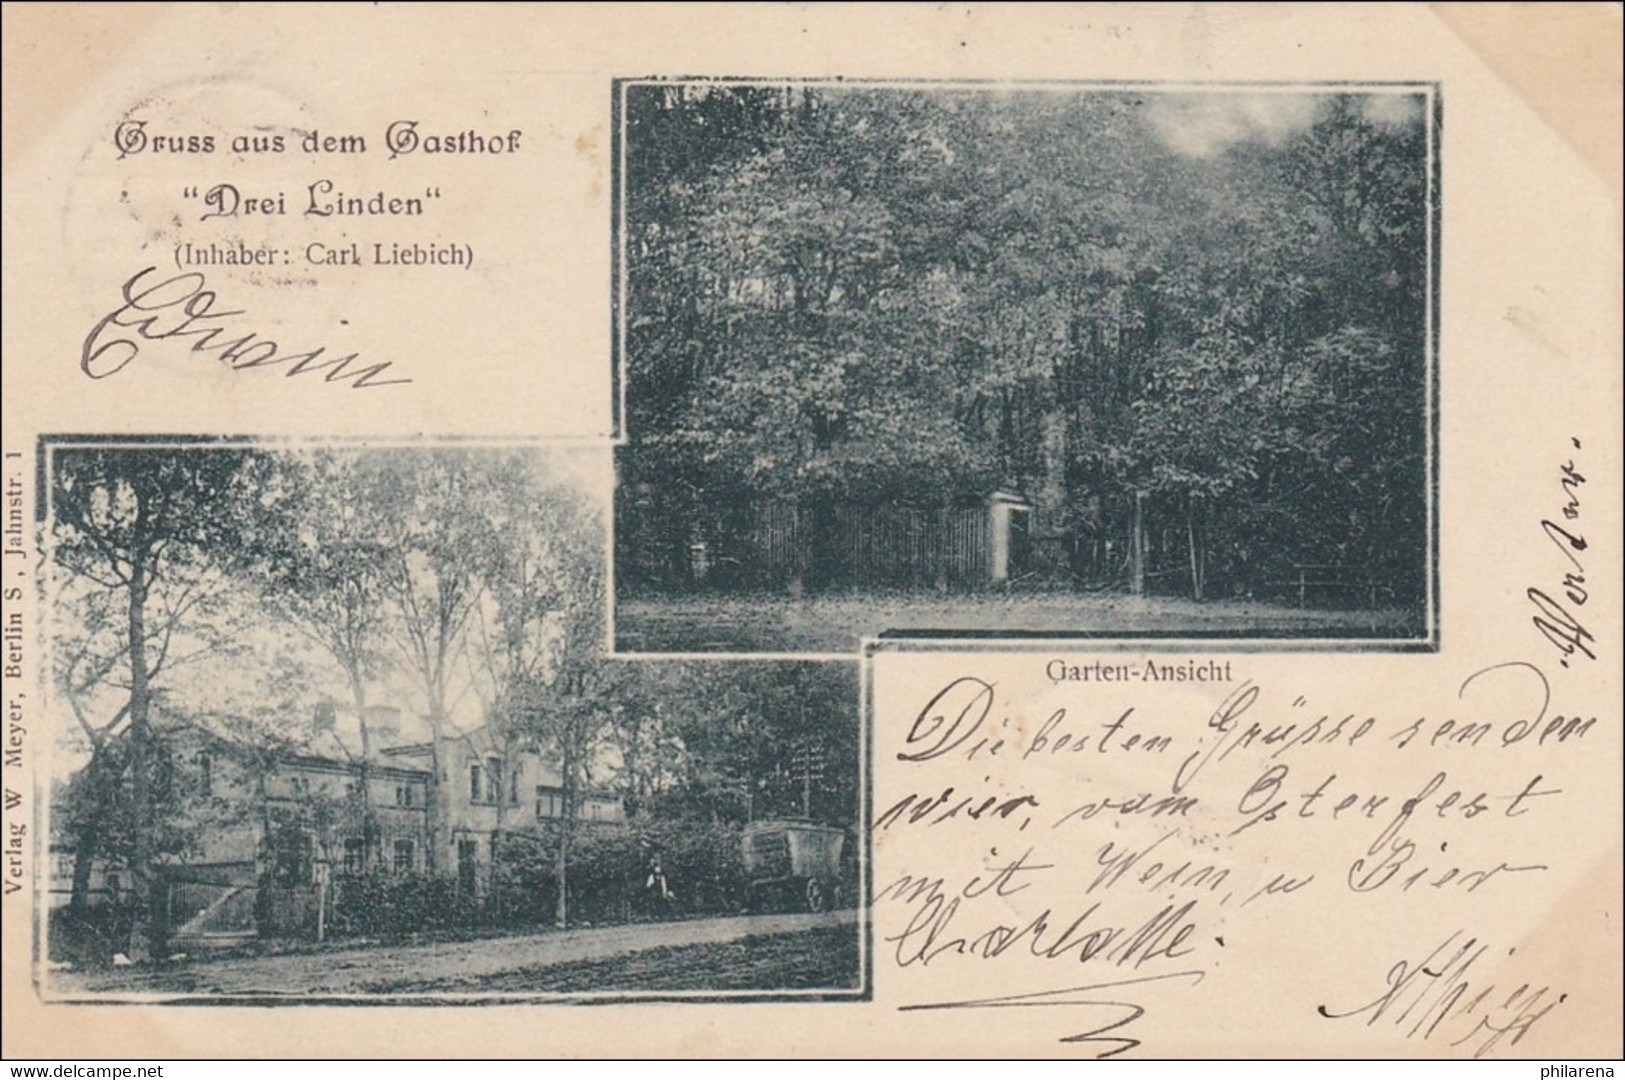 Gruss aus dem Gasthof
“Drei Linden“
(Inhaber: Carl Liebich)
Edwin
Verlag W Meyer, Berlin S, Jahnstr. 1
Garten-Ansicht
Die besten Grüsse senden
wier, vom Osterfest
mit Wein, u Bier
Charlotte.
www.delcampe.net
philarena